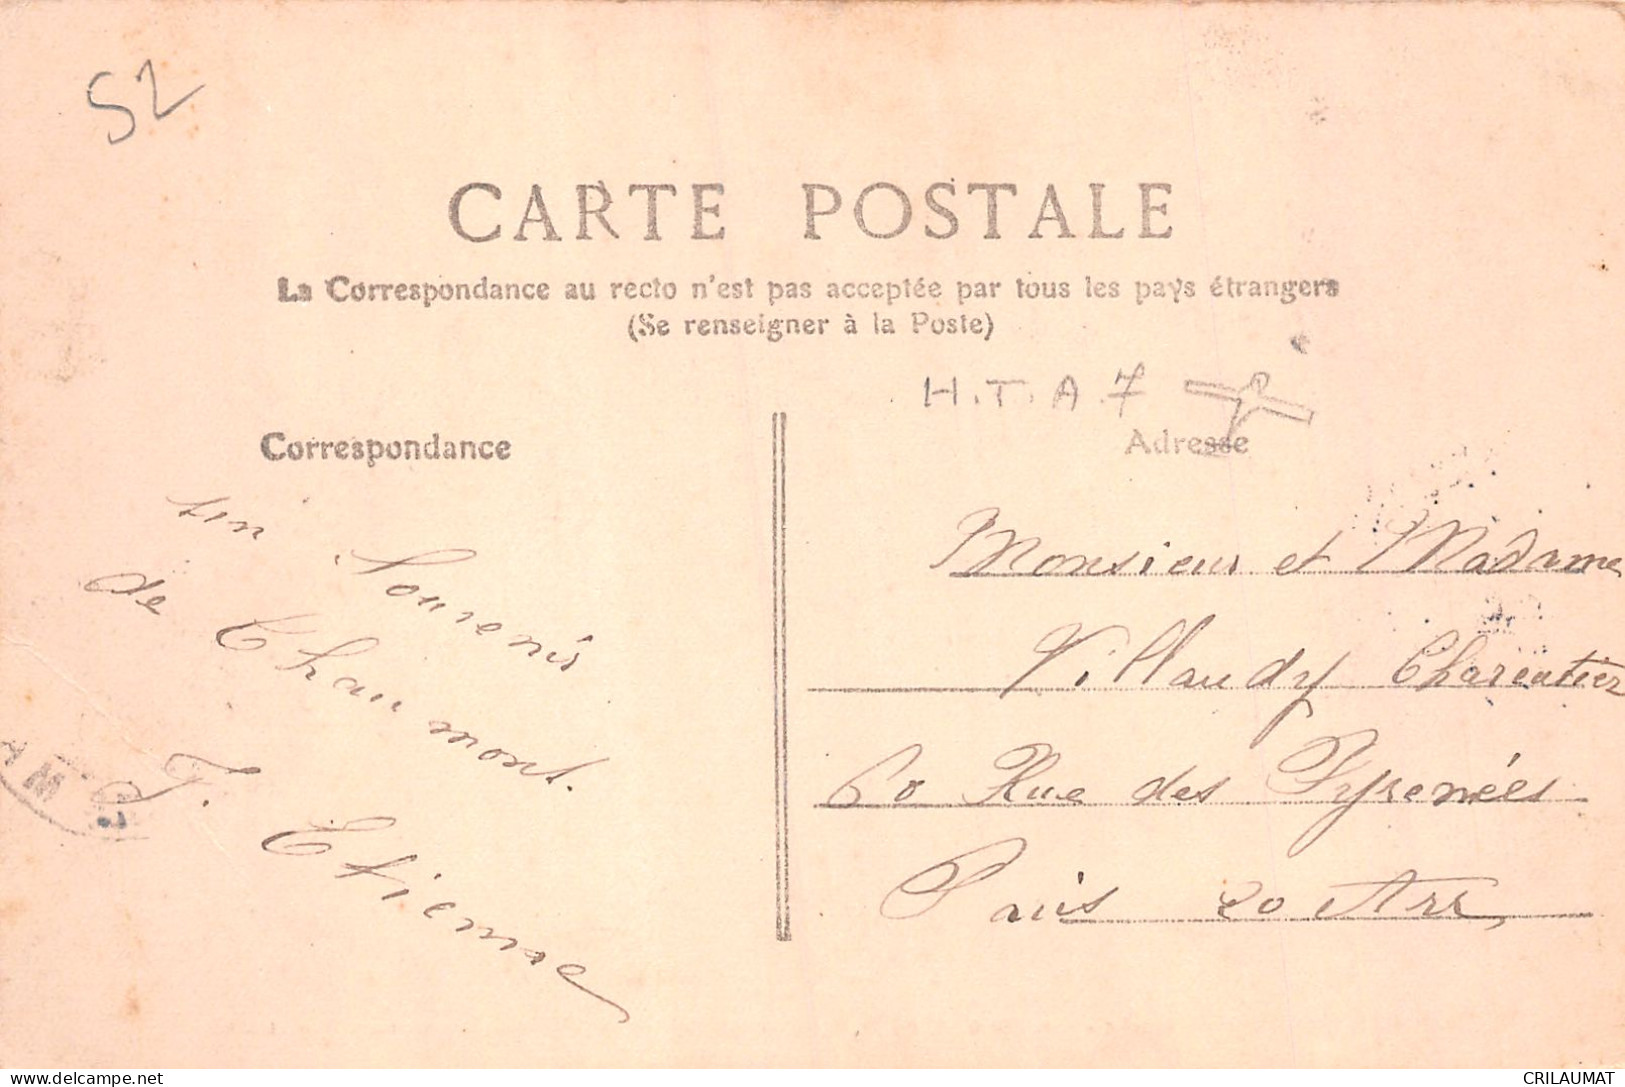 52
CARTE POSTALE
La Correspondance au recto n'est pas acceptée par tous les pays étrangers
(Se renseigner à la Poste)
H.T.A.7
Correspondance
Adresse
un Souvenis
de Chaumont.
T. Etienne
Monsieur et Madame
Villaudy Charentier
60 Rue des Pyrenéés
Paris 20 Arr
www.delcampe.net
CRILAUMAT